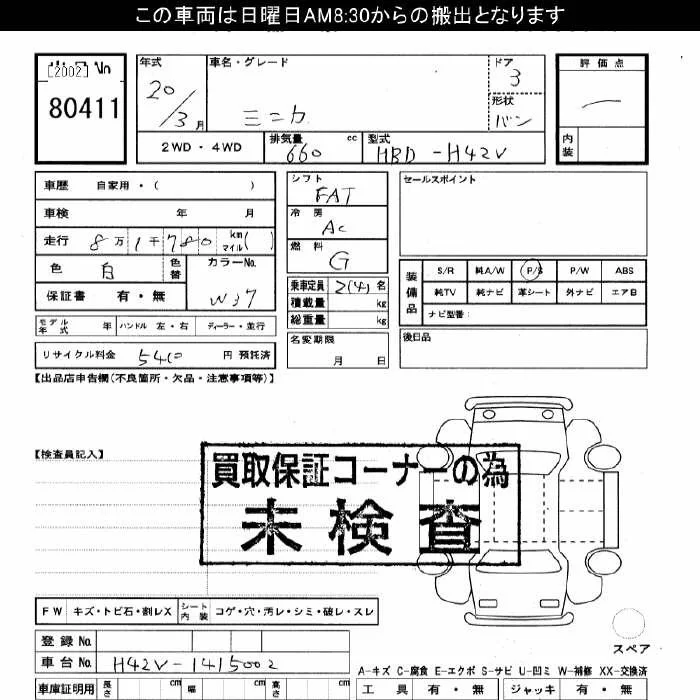 この車両は日曜日AM8:30からの搬出となります
[2002]
80411
年式
20/3月
車名・グレード
ミニカ
ドア
3
形状
バン
評価点
内装
2WD・4WD
排気量 660 cc
型式 HBD-H42V
車歴 自家用・( )
車検 年 月
走行 8万1千780 km マイル( )
色 白 色替 カラーNo. W37
保証書 有・無
モデル年式 年 ハンドル 左・右 ディーラー・並行
リサイクル料金 5410 円 預託済
シフト FAT
冷房 AC
燃料 G
乗車定員 2(4)名
積載量 kg
総重量 kg
名変期限 月 日
セールスポイント
装備品
S/R 純A/W P/S P/W ABS
純TV 純ナビ 革シート 外ナビ エアB
ナビ型番:
後日品
【出品店申告欄(不良箇所・欠品・注意事項等)】
【検査員記入】
買取保証コーナーの為
未検査
FW キズ・トビ石・割レX シート内装 コゲ・穴・汚レ・シミ・破レ・スレ
スペア
登録No.
車台No. H42V-1415002
A-キズ C-腐食 E-エクボ S-サビ U-凹ミ W-補修 XX-交換済
車庫証明用 長さ cm 幅 cm 高さ cm
工具 有・無 ジャッキ 有・無